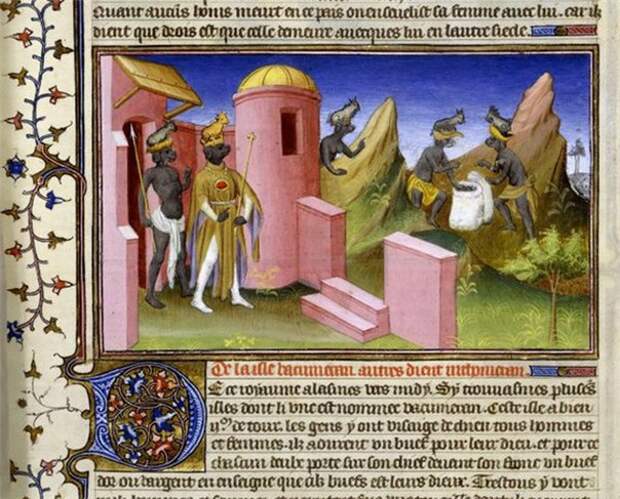 Quant aucuns homs meurt en ce pais on enseuelist sa femme auec lui. car ilz
dient que drois est que celle demeure auecques lui en lautre siecle.
De la isle vacumeran autres dient
De ce royaume alasmes vers midy. Sy trouuasmes pluseurs
isles dont li vne est nommee vacumeran. Ceste isle a bien
de tour. les gens y ont visaige de chien tous hommes
et femmes. ilz aourent un buef pour leur dieu. et pour ce
chascun deulx porte sur son chief deuant son front un buef
dor ou dargent en enseigne que cilz buefs est leurs dieux. Trestous y vont